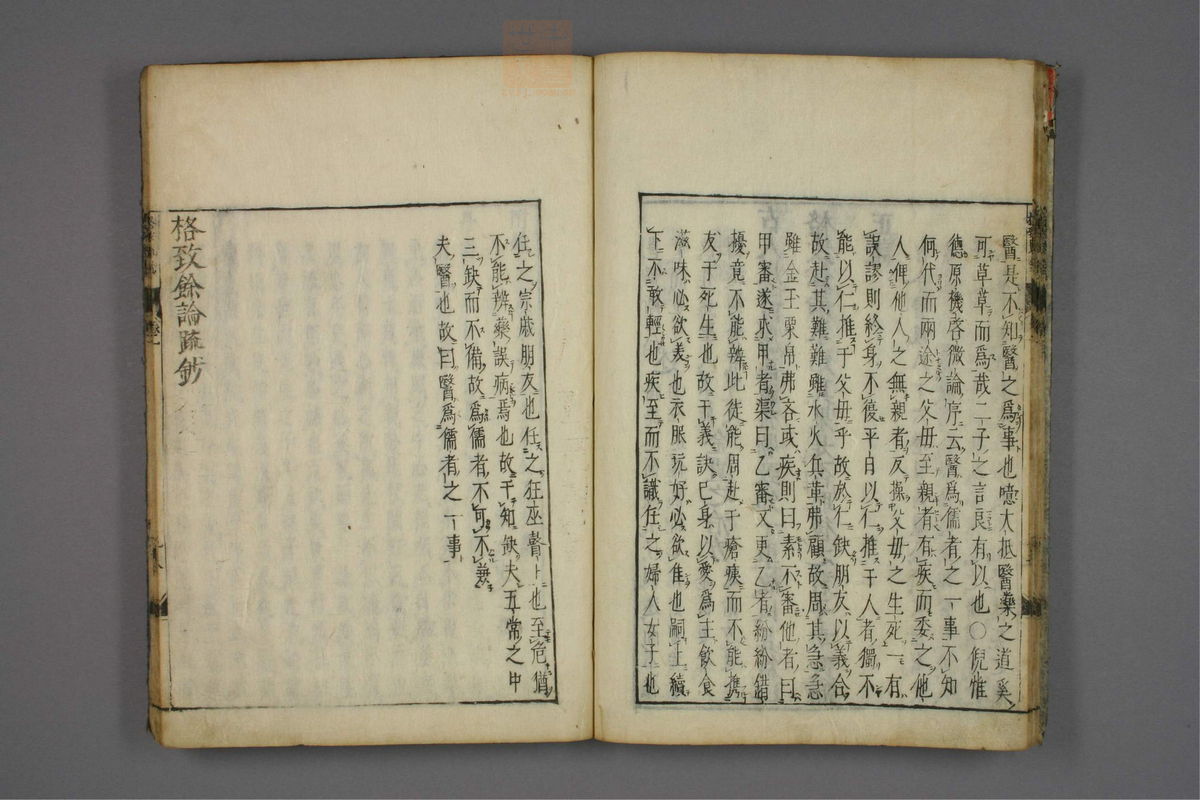 醫是不知醫之爲事也噫大抵醫藥之道奚
可草草而爲哉二子之言良有以也〇倪惟
德原機啓微論序云醫爲儒者之一事不知
何代而兩途之父毋至親者有疾而委之他
人俾他人之無親者反操父毋之生死一有
誤謬則終身不復平日以仁推于人者獨不
能以仁推于父毋乎故於仁缺朋友以義合
故赴其難難雖水火兵革弗顧故周其急急
雖金玉粟帛弗吝或疾則曰素不審他者曰
甲審遂求甲者渠曰乙審又更乙者紛紛錯
擾竟不能辨此徒能周赴于瘡痍而不能携
友于死生也故于義訣巳身以愛爲主飲食
滋味必欲美也衣服玩好必欲佳也嗣上續
下不敢輕也疾至而不識任之婦人女子也
任之宗戚朋友也任之狂巫瞽卜也至危猶
不能辨藥誤病焉也故于知缺夫五常之中
三缺而不備故爲儒者不可不兼
夫醫也故曰醫爲儒者之一事
格致餘論疏鈔